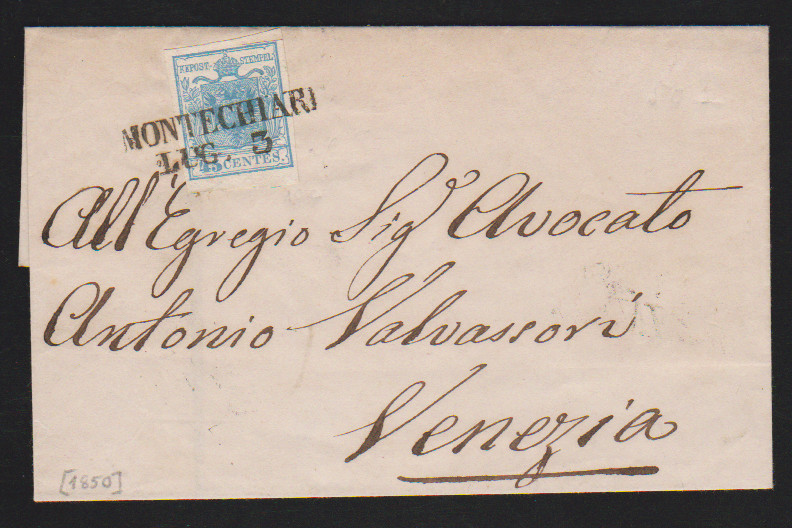 KKPOST-STEMPEL
MONTECHIARI
LUG. 3
45 CENTES.
All'Egregio Sigr Avocato
Antonio Valvassori
Venezia
[1850]